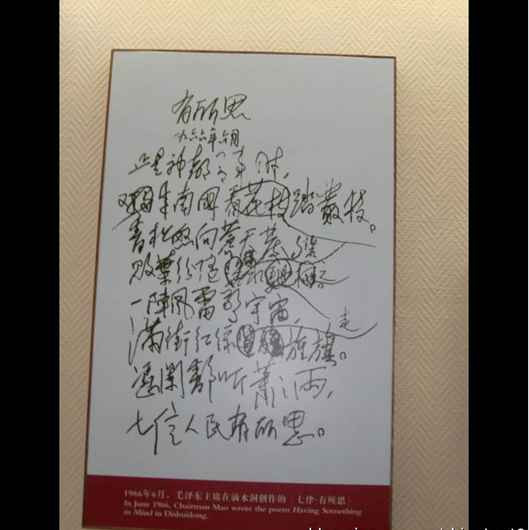 有所思
一九六六年六月
正是神都有事时,
又来南国踏丛枝。
青松怒向苍天
败叶纷随
一阵风雷惊宇宙,
满街红绿走旌旗。
凭阑静听萧萧雨,
七亿人民有所思。
1966年6月,毛泽东主席在滴水洞创作的《七律·有所思》
In June 1966, Chairman Mao wrote the poem Having Something
in Mind in Dishuidong.